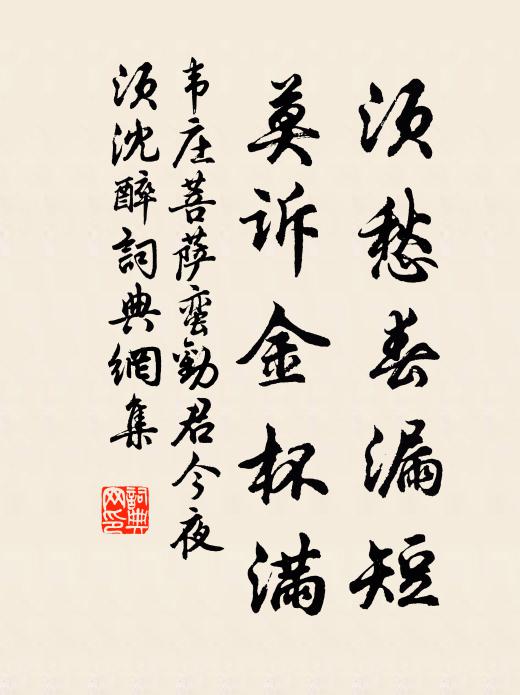 须愁春漏短
莫诉金杯满
韦庄菩萨蛮劝君今夜
须沈醉詞典網集
詞典
网印